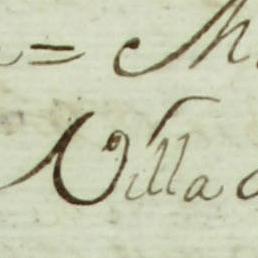 = M
Villa